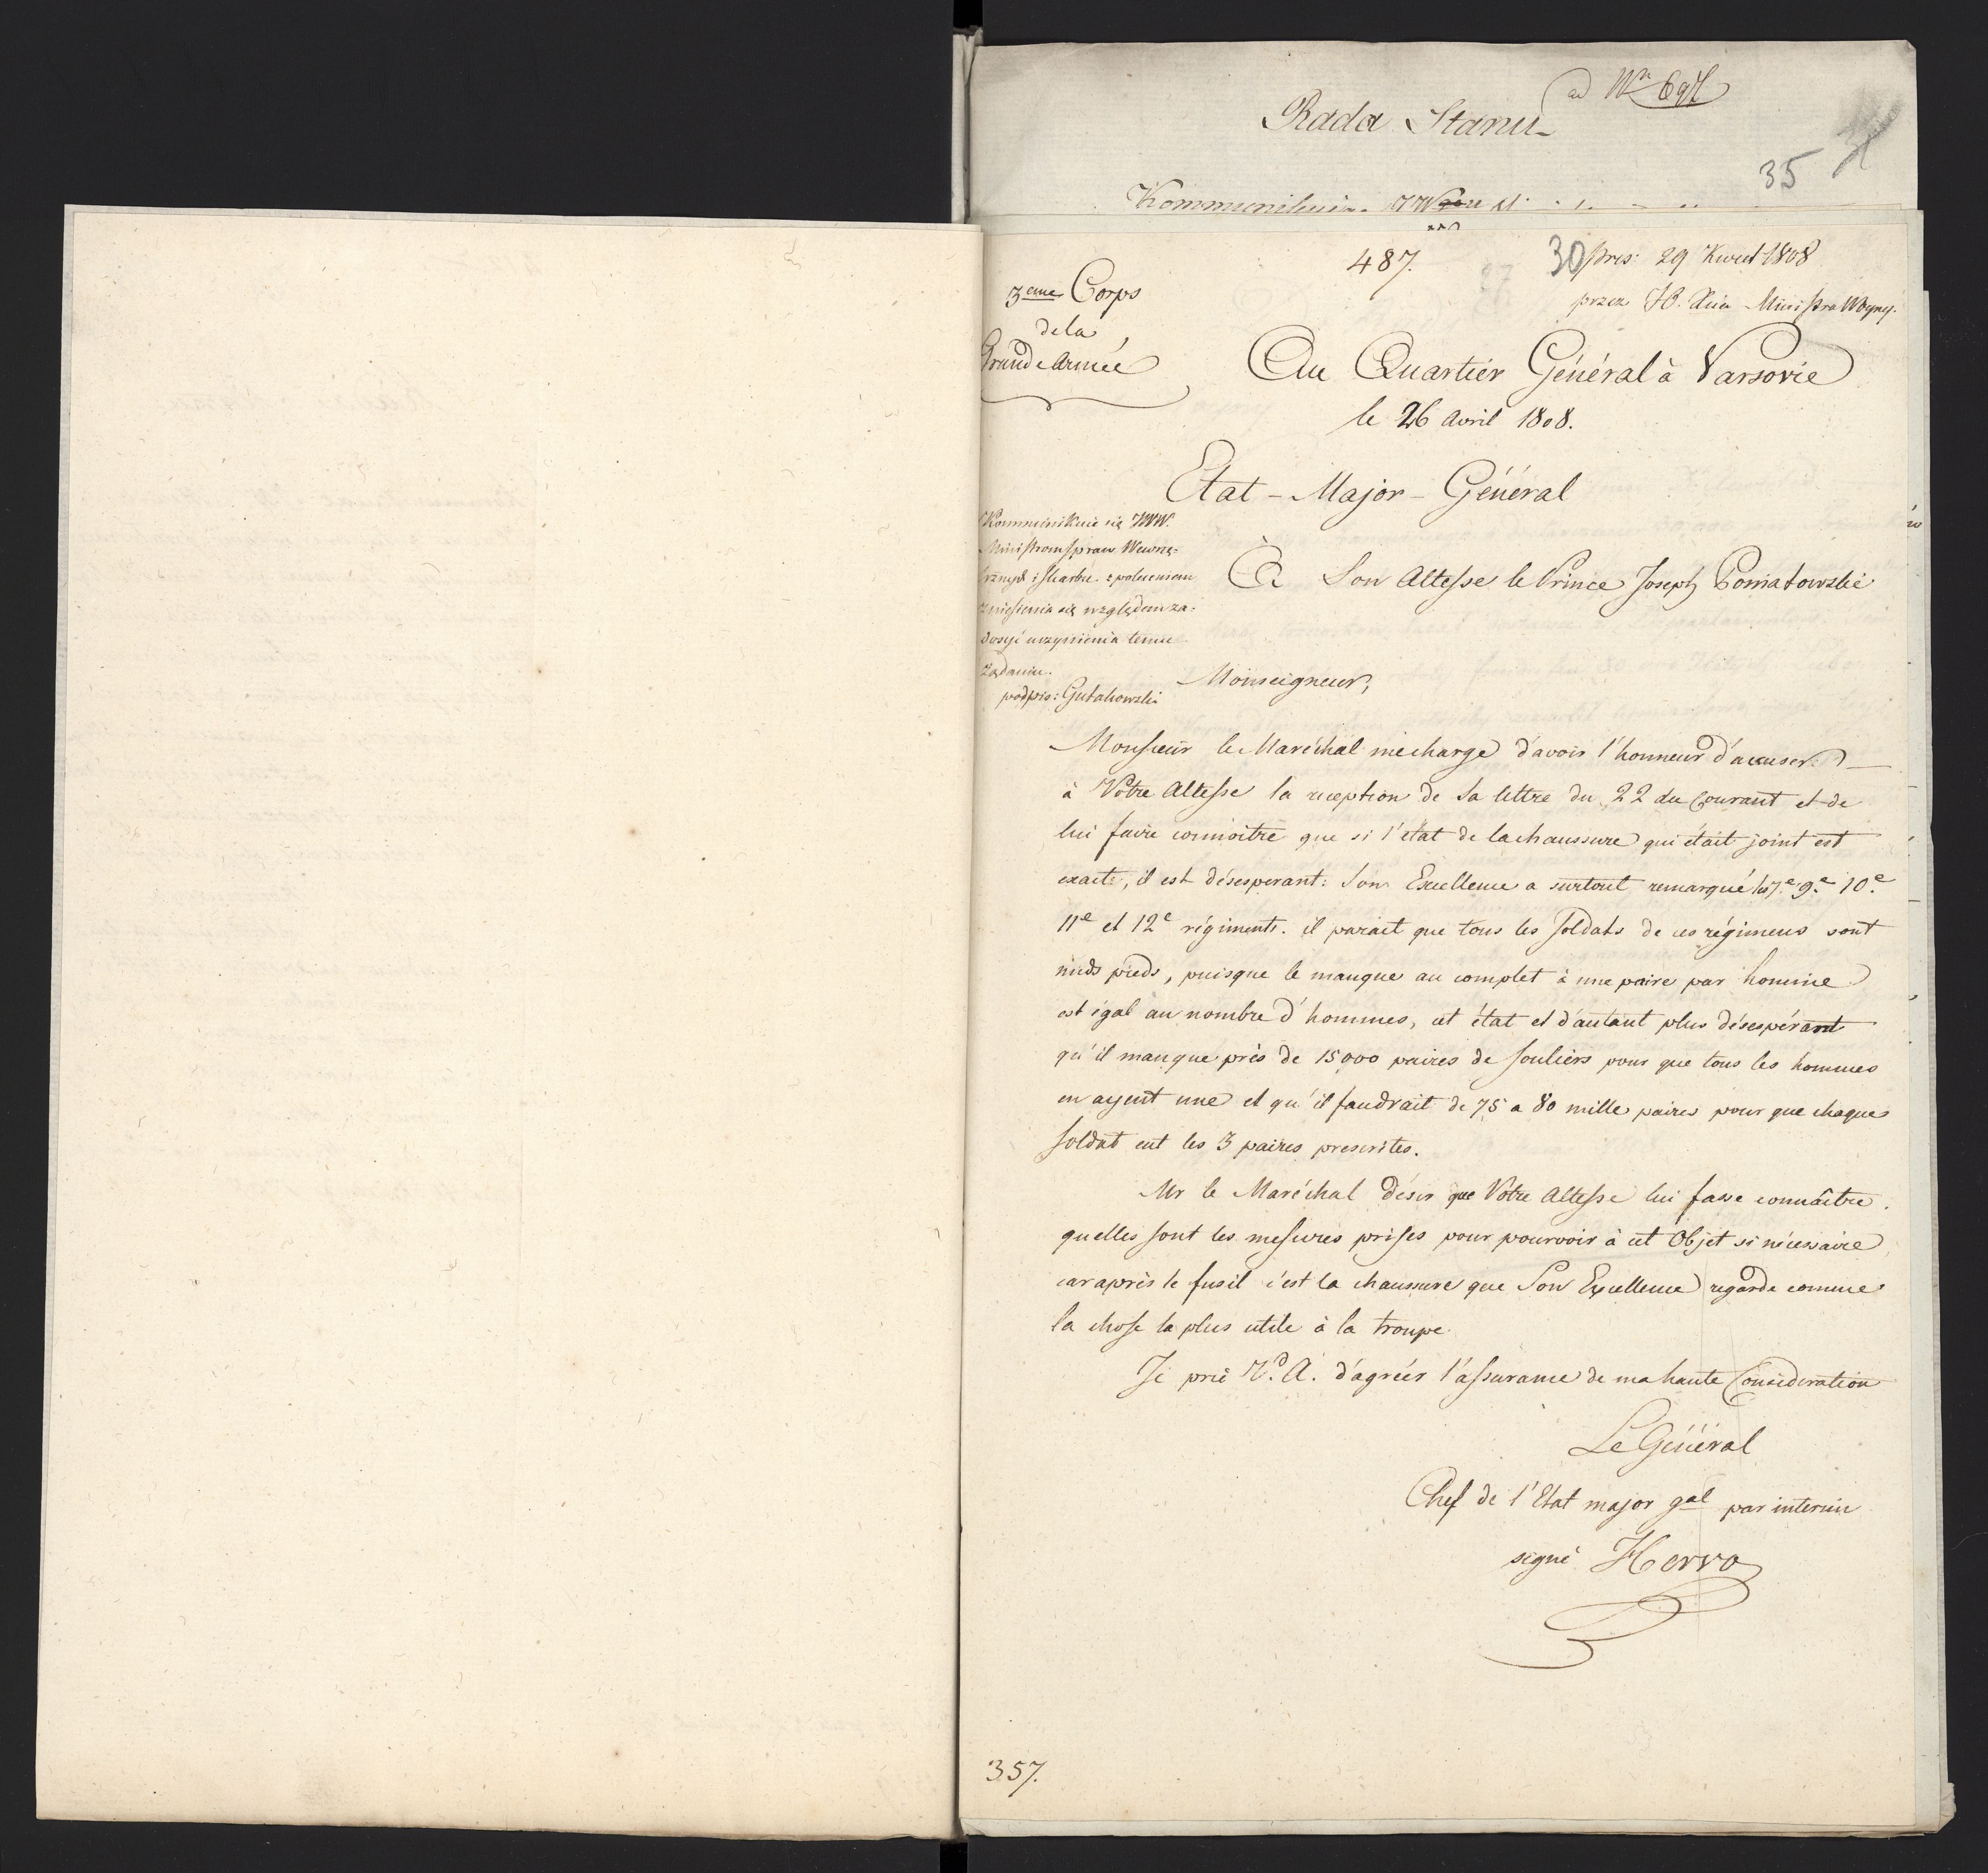 ad Nr
Rada Stanu
35
487.
30 pres: 29 Kwiet 1808
przez Ministra Woyny.
3eme Corps
de la
Grande Armée
Au Quartier Général à Varsovie
le 26 Avril 1808.
Etat-Major-Général
Kommunikuie się JWW.
Ministrom spraw Wewnę-
trznych i skarbu z poleceniem
zniesienia się względem za-
dosyć uczynienia temu
żądaniu.
podpis: Gutakowski
À Son Altesse le Prince Joseph Poniatowski
Monseigneur,
Monsieur le Maréchal me charge d'avoir l'honneur d'accuser
à Votre Altesse la reception de Sa lettre du 22 du Courant et de
lui faire connoitre que si l'état de la chaussure qui était joint est
exacte, il est désesperant: Son Excellence a surtout remarqué les 7.e 9.e 10.e
11e et 12e régiments. il parait que tous les soldats de ces régimens sont
nuds pieds, puisque le manque au complet à une paire par homme
est égal au nombre d'hommes, cet état et d'autant plus désespérant
qu'il manque près de 15000 paires de souliers pour que tous les hommes
en ayent une et qu'il faudrait de 75 a 80 mille paires pour que chaque
soldat eut les 3 paires prescrites.
Mr le Maréchal désir que Votre Altesse lui fasse connaître
quelles sont les mesures prises pour pourvoir à cet Objet si nécessaire
car après le fusil c'est la chaussure que Son Excellence regarde comme
la chose la plus utile à la troupe.
Je prie V. A. d'agréer l'assurance de ma haute Consideration
Le Général
Chef de l'Etat major gal par interim
signé Hervo
357.